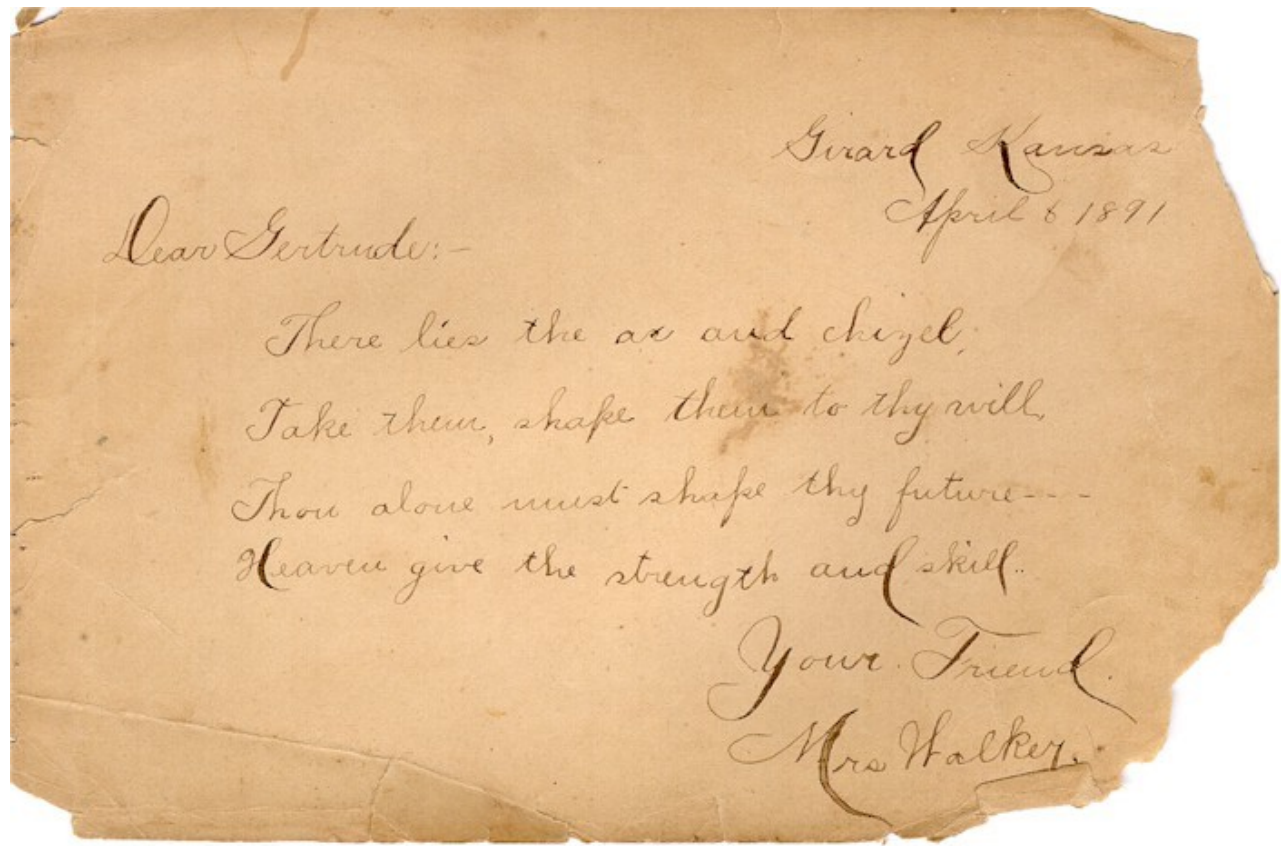 Girard Kansas
April 6 1891
Dear Gertrude:-
There lies the ax and chizel,
Take them, shape them to thy will,
Thou alone must shape thy future---
Heaven give the strength and skill..
Your Friend.
Mrs Walker.